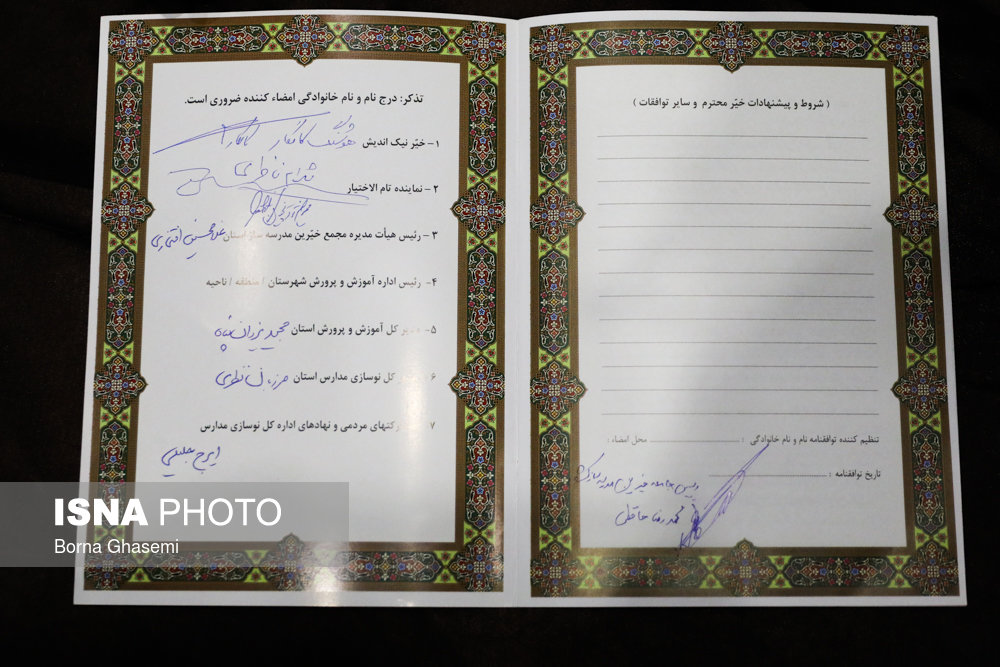 ( شروط و پیشنهادات خیّر محترم و سایر توافقات )
تنظیم کننده توافقنامه نام و نام خانوادگی : محل امضاء :
تاریخ توافقنامه
محمد رضا حافظی
تذکر: درج نام و نام خانوادگی امضاء کننده ضروری است.
۱- خیّر نیک اندیش هوشنگ کامکار
۲- نماینده تام الاختیار
۳ - رئیس هیأت مدیره مجمع خیّرین مدرسه ساز استان غلامحسین افتخاری
۴- رئیس اداره آموزش و پرورش شهرستان / منطقه / ناحیه
۵- مدیر کل آموزش و پرورش استان مجید یزدان پناه
۶ کل نوسازی مدارس استان مرزبان نظری
۷ مشارکتهای مردمی و نهادهای اداره کل نوسازی مدارس
ایرج
ISNA PHOTO
Borna Ghasemi